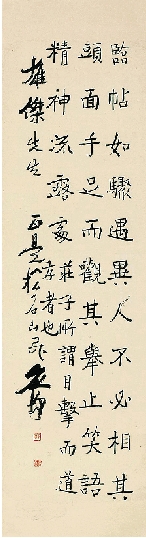 臨帖如驟遇異人不必相其
頭面手足而觀其舉止笑語
精神流露處莊子所謂目擊而道
存者也
雄傑先生正是